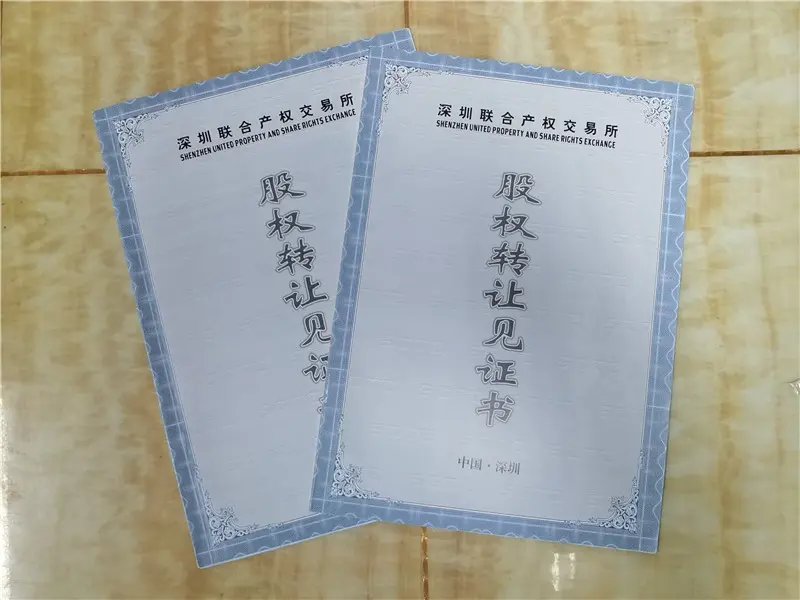 深圳联合产权交易所
SHENZHEN UNITED PROPERTY AND SHARE RIGHTS EXCHANGE
股权转让见证
深圳联合产权交易所
SHENZHEN UNITED PROPERTY AND SHARE RIGHTS EXCHANGE
股权转让见证书
中国·深圳